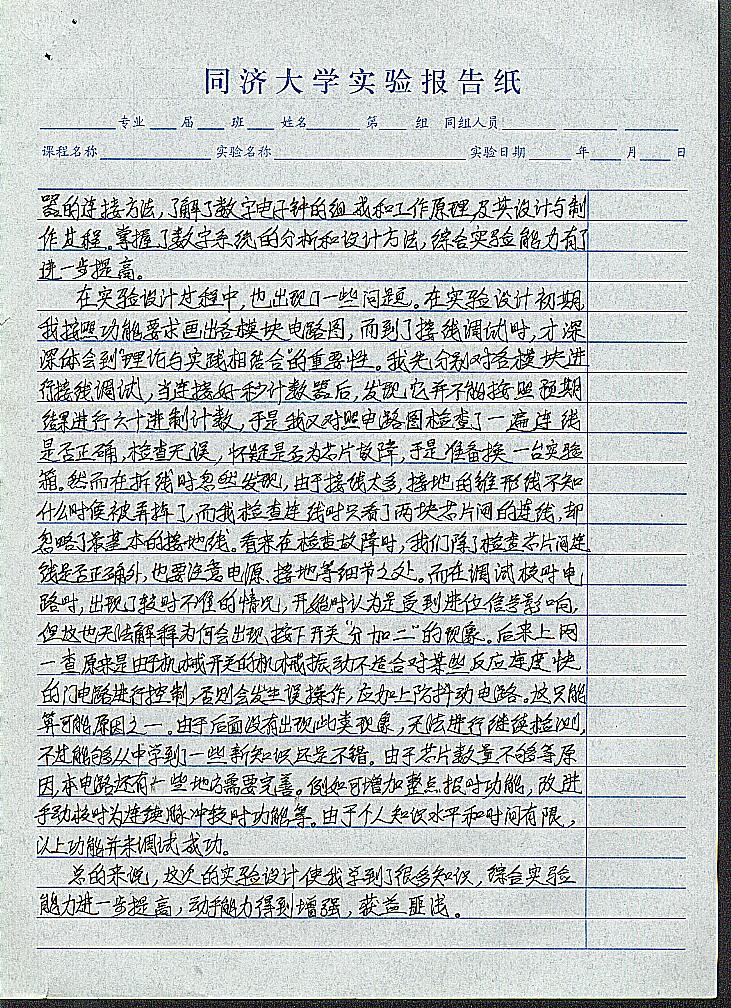 同济大学实验报告纸
专业 届 班 姓名 第 组 同组人员
课程名称 实验名称 实验日期 年 月 日
器的连接方法，了解了数字电子钟的组成和工作原理及其设计与制
作过程。掌握了数字系统的分析和设计方法，综合实验能力有了
进一步提高。
在实验设计过程中，也出现了一些问题。在实验设计初期，
我按照功能要求画出各模块电路图，而到了接线调试时，才深
深体会到“理论与实践相结合”的重要性。我先分别对各模块进
行接线调试，当连接好秒计数器后，发现它并不能按照预期
结果进行六十进制计数，于是我又对照电路图检查了一遍连线
是否正确，检查无误，怀疑是否为芯片故障，于是准备换一台实验
箱。然而在拆线时忽然发现，由于接线太多，接地的锥形线不知
什么时候被弄掉了，而我检查连线时只看了两块芯片间的连线，却
忽略了最基本的接地线。看来在检查故障时，我们除了检查芯片间连
线是否正确外，也要注意电源、接地等细节之处。而在调试校时电
路时，出现了校时不准的情况，开始时认为是受到进位信号影响，
但这也无法解释为何会出现按下开关“分加二”的现象。后来上网
一查原来是由于机械开关的机械振动不适合对某些反应速度快
的门电路进行控制，否则会发生误操作，应加上防抖动电路。这只能
算可能原因之一。由于后面没有出现此类现象，无法进行继续检测，
不过能够从中学到了一些新知识还是不错。由于芯片数量不够等原
因，本电路还有一些地方需要完善。例如可增加整点报时功能，改进
手动校时为连续脉冲校时功能等。由于个人知识水平和时间有限，
以上功能并未调试成功。
总的来说，这次的实验设计使我学到了很多知识，综合实验
能力进一步提高，动手能力得到增强，获益匪浅。